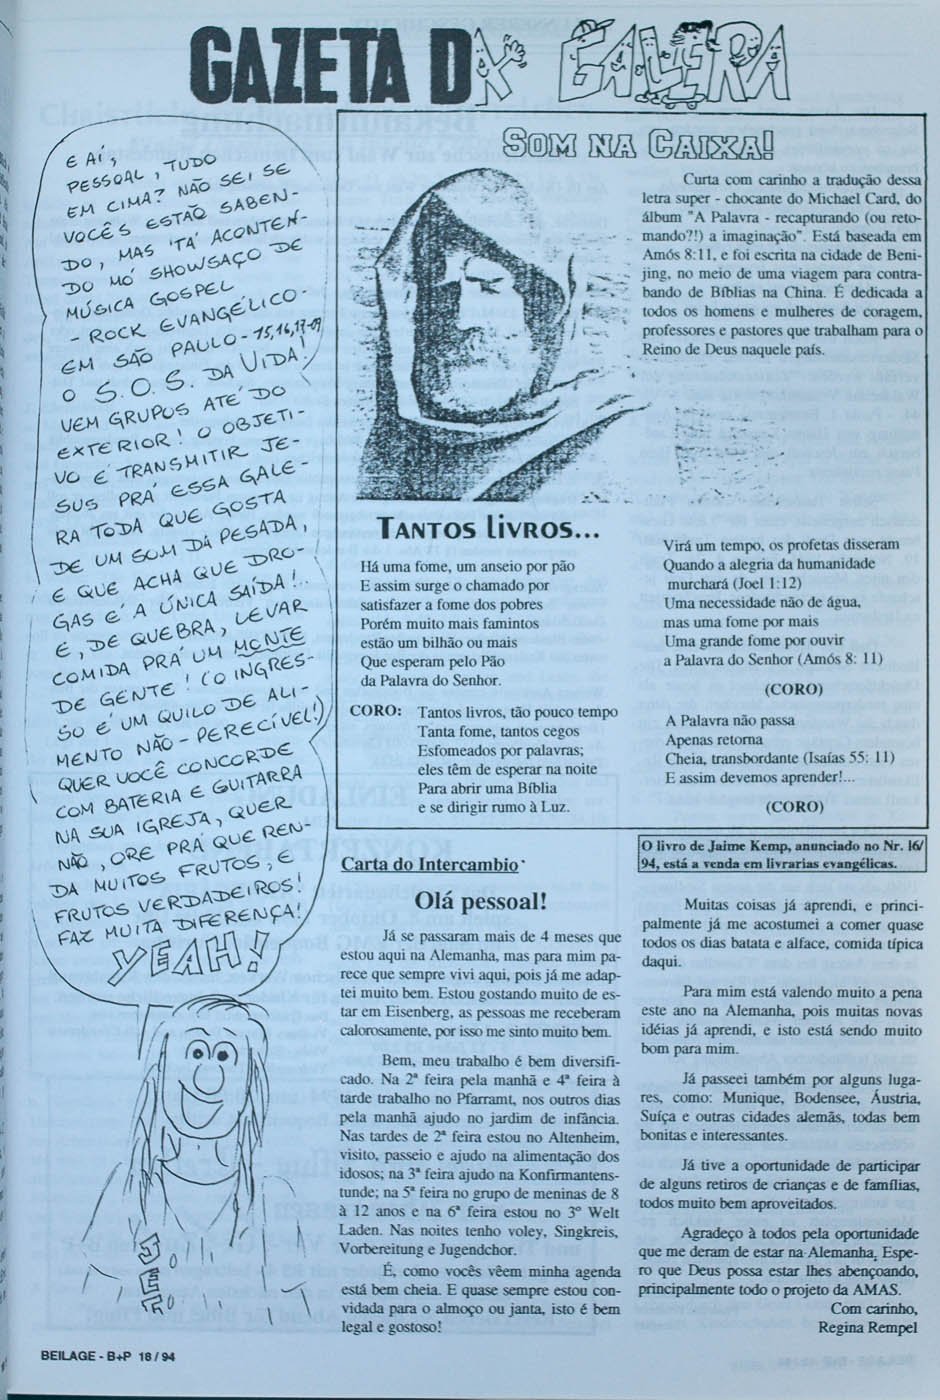 GAZETA DA GALERA
E AÍ,
PESSOAL, TUDO
EM CIMA? NÃO SEI SE
VOCÊS ESTÃO SABEN-
DO, MAS 'TÁ ACONTEN-
DO MÓ SHOWSAÇO DE
MÚSICA GOSPEL
- ROCK EVANGÉLICO -
EM SÃO PAULO - 15,16,17-09
O S.O.S. DA VIDA!
VEM GRUPOS ATÉ DO
EXTERIOR! O OBJETI-
VO É TRANSMITIR JE-
SUS PRÁ ESSA GALE-
RA TODA QUE GOSTA
DE UM SOM DA PESADA,
E QUE ACHA QUE DRO-
GAS É A ÚNICA SAÍDA!..
E, DE QUEBRA, LEVAR
COMIDA PRÁ UM MONTE
DE GENTE! (O INGRES-
SO É UM QUILO DE ALI-
MENTO NÃO-PERECÍVEL!)
QUER VOCÊ CONCORDE
COM BATERIA E GUITARRA
NA SUA IGREJA, QUER
NÃO, ORE PRÁ QUE REN-
DA MUITOS FRUTOS, E
FRUTOS VERDADEIROS!
FAZ MUITA DIFERENÇA!
YEAH!
SOM NA CAIXA!
Curta com carinho a tradução dessa
letra super - chocante do Michael Card, do
álbum "A Palavra - recapturando (ou reto-
mando?!) a imaginação". Está baseada em
Amós 8:11, e foi escrita na cidade de Beni-
jing, no meio de uma viagem para contra-
bando de Bíblias na China. É dedicada a
todos os homens e mulheres de coragem,
professores e pastores que trabalham para o
Reino de Deus naquele país.
TANTOS LIVROS...
Há uma fome, um anseio por pão
E assim surge o chamado por
satisfazer a fome dos pobres
Porém muito mais famintos
estão um bilhão ou mais
Que esperam pelo Pão
da Palavra do Senhor.
CORO: Tantos livros, tão pouco tempo
Tanta fome, tantos cegos
Esfomeados por palavras;
eles têm de esperar na noite
Para abrir uma Bíblia
e se dirigir rumo à Luz.
Virá um tempo, os profetas disseram
Quando a alegria da humanidade
murchará (Joel 1:12)
Uma necessidade não de água,
mas uma fome por mais
Uma grande fome por ouvir
a Palavra do Senhor (Amós 8: 11)
(CORO)
A Palavra não passa
Apenas retorna
Cheia, transbordante (Isaías 55: 11)
E assim devemos aprender!...
(CORO)
O livro de Jaime Kemp, anunciado no Nr. 16/
94, está a venda em livrarias evangélicas.
Carta do Intercambio
Olá pessoal!
Já se passaram mais de 4 meses que
estou aqui na Alemanha, mas para mim pa-
rece que sempre vivi aqui, pois já me adap-
tei muito bem. Estou gostando muito de es-
tar em Eisenberg, as pessoas me receberam
calorosamente, por isso me sinto muito bem.
Bem, meu trabalho é bem diversifi-
cado. Na 2ª feira pela manhã e 4ª feira à
tarde trabalho no Pfarramt, nos outros dias
pela manhã ajudo no jardim de infância.
Nas tardes de 2ª feira estou no Altenheim,
visito, passeio e ajudo na alimentação dos
idosos; na 3ª feira ajudo na Konfirmantens-
tunde; na 5ª feira no grupo de meninas de 8
à 12 anos e na 6ª feira estou no 3º Welt
Laden. Nas noites tenho voley, Singkreis,
Vorbereitung e Jugendchor.
É, como vocês vêem minha agenda
está bem cheia. E quase sempre estou con-
vidada para o almoço ou janta, isto é bem
legal e gostoso!
Muitas coisas já aprendi, e princi-
palmente já me acostumei a comer quase
todos os dias batata e alface, comida típica
daqui.
Para mim está valendo muito a pena
este ano na Alemanha, pois muitas novas
idéias já aprendi, e isto está sendo muito
bom para mim.
Já passeei também por alguns luga-
res, como: Munique, Bodensee, Áustria,
Suíça e outras cidades alemãs, todas bem
bonitas e interessantes.
Já tive a oportunidade de participar
de alguns retiros de crianças e de famílias,
todos muito bem aproveitados.
Agradeço à todos pela oportunidade
que me deram de estar na Alemanha. Espe-
ro que Deus possa estar lhes abençoando,
principalmente todo o projeto da AMAS.
Com carinho,
Regina Rempel
BEILAGE - B+P 18/94